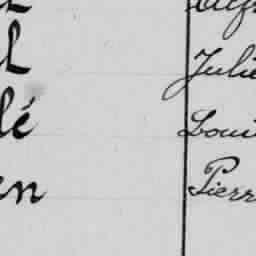 l Julie
lé Loui
en Pierr